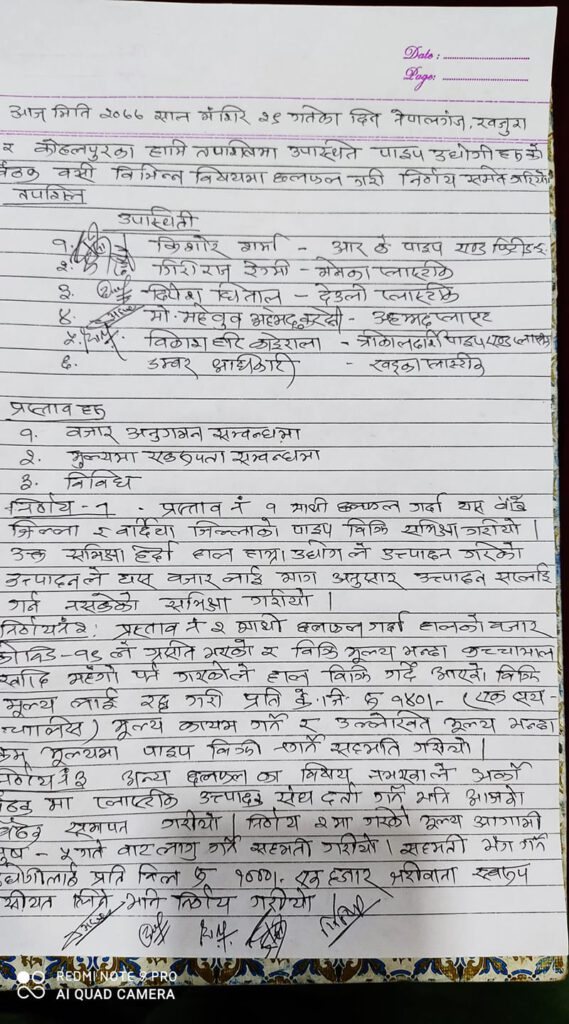 Date :
Page:
आज मिति २०७७ साल मंसिर २९ गतेका दिन नेपालगंज, खजुरा
र कोहलपुरका हामि तपासिलमा उपस्थिति पाइप उद्योगी हरुको
बैठक वसी विभिन्न विषयमा छलफल गरी निर्णय समेत गरियो
तपासिल
उपस्थिती
१. किशोर शर्मा - आर के पाइप एण्ड फिटिङ्ग
२. गिरीराज रेग्मी - मेनका प्लास्टीक
३. दिपेश धिताल - देउती प्लास्टीक
४. मो. महेवुव अहमद कुरेशी - अहमद प्लाष्ट
५. विकाश हरि कोइराला - त्रीकालदर्शि पाइप एण्ड प्लास्टिक
६. डम्वर अधिकारी - खड्का प्लास्टीक
प्रस्ताव हरु
१. वजार अनुगमन सम्वन्धमा
२. मुल्यमा एकरुपता सम्वन्धमा
३. विविधि
निर्णय - १ - प्रस्ताव नं १ माथी छलफल गर्दा यस बाँके
जिल्ला र वर्दिया जिल्लाको पाइप विक्रि समिक्षा गरीयो |
उक्त समिक्षा हेर्दा हाल हाम्रा उद्योग ले उत्पादन गरेको
उत्पादनले यस वजार लाई माग अनुसार उत्पादन सप्लाई
गर्न नसकेको समिक्षा गरीयो |
निर्णय नं २: प्रस्ताव नं २ माथी छलफल गर्दा हालको वजार
कोभिड-१९ ले ग्रसति भएको र विक्रि मूल्य भन्दा कच्चामाल
खरिद महँगो पर्न गएकोले हाल विक्रि गर्दै आएको विक्रि
मूल्य लाई रद्द गरी प्रति के.जि. रु १४०/- (एक सय
चालिस) मूल्य कायम गर्ने र उल्लेखित मूल्य भन्दा
कम मूल्यमा पाइप विक्री नगर्ने सहमति गरीयो |
निर्णय नं ३ अन्य छलफल का विषय नभएकाले अर्को
बैठक मा प्लास्टीक उत्पादक संघ दर्ता गर्ने भनि आजको
बैठक समापन गरीयो | निर्णय २ मा गरेको मूल्य आगामी
पुष - ५ गते वाट लागु गर्ने सहमती गरीयो | सहमती भंग गर्ने
उद्योगीलाई प्रति विल रु १०००/- एक हजार जरीवाना स्वरुप
लिने भनि निर्णय गरीयो
REDMI NOTE 9 PRO
AI QUAD CAMERA